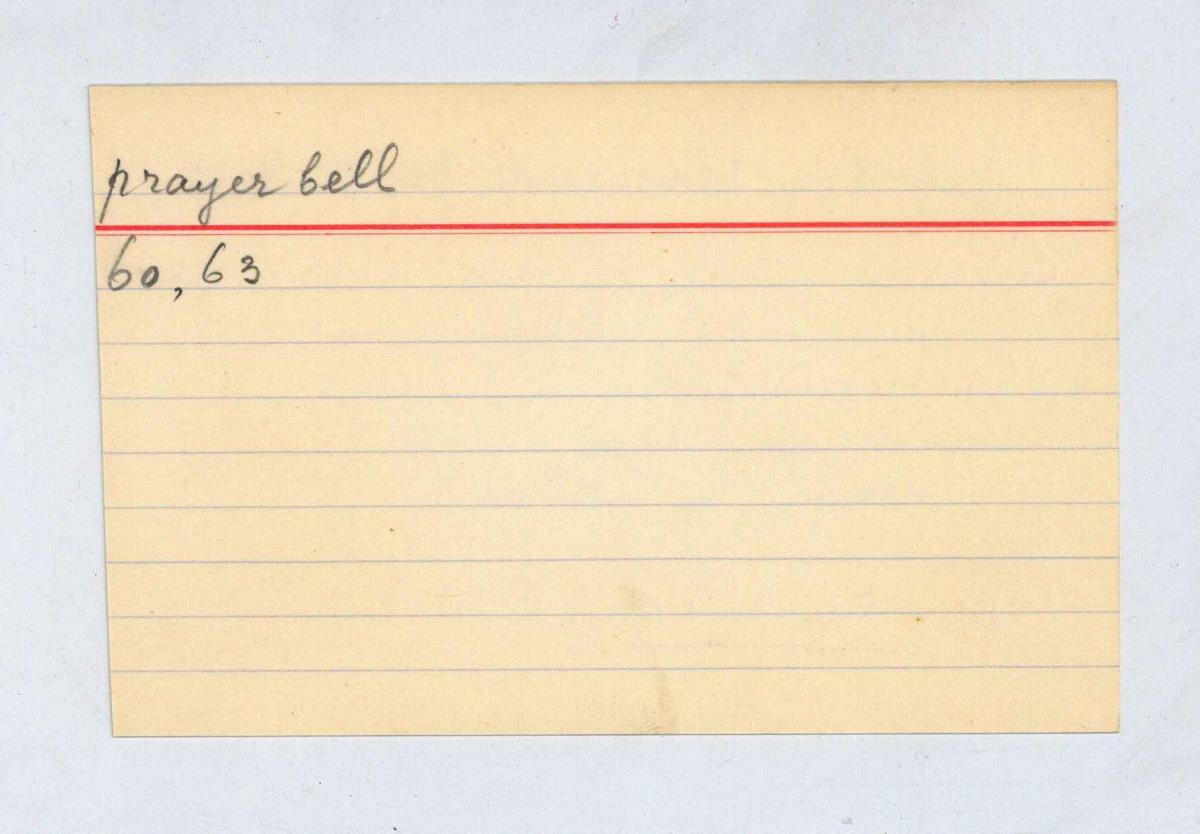 prayer bell
60, 63